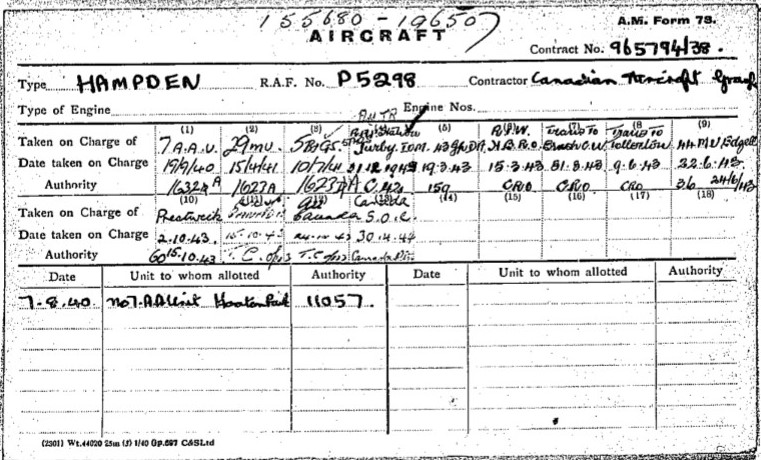 155680 - 19650
A.M. Form 78.
AIRCRAFT
Contract No. 965794/38.
Type HAMPDEN R.A.F. No. P5298 Contractor Canadian Aircraft Group
Type of Engine Engine Nos.
(1) (2) (3) (5) (6) (7) (8) (9)
Taken on Charge of 7 A.A.U. 29 MU. 5 B+GS. Jurby I.O.M. 43 Gp DA Trans To Trans To Tollerton 44 MU Edzell
Date taken on Charge 19/9/40 15/4/41 10/7/41 21.12.1942 19.3.43 15.3.43 31.3.43 9.6.43 22.6.43
Authority 1632A 1623A 1623A 159 CRO CRO CRO 36 24/6/43
(10) (14) (15) (16) (17) (18)
Taken on Charge of Prestwick Canada Canada S.O.C.
Date taken on Charge 2.10.43. 15.10.43 30.4.44
Authority 60 15.10.43 T.C. T.C.
Date Unit to whom allotted Authority Date Unit to whom allotted Authority
7-8-40. No 7. AA Unit Hooton Park 11057.
(2301) Wt.44020 25m (3) 1/40 Gp.697 C&SLtd